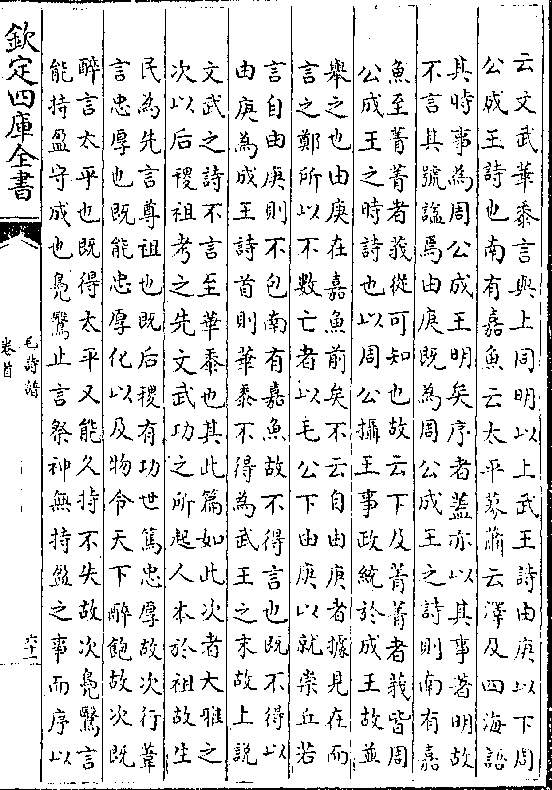 云文武華黍言與上同明以上武王詩由庚以下周
公成王詩也南有嘉魚云太平蓼蕭云澤及四海語
其時事為周公成王明矣序者蓋亦以其事著明故
不言其號諡焉由庚既為周公成王之詩則南有嘉
魚至菁菁者莪從可知也故云下及菁菁者莪皆周
公成王之時詩也以周公攝王事政統於成王故並
舉之也由庚在嘉魚前矣不云自由庚者據見在而
言之鄭所以不數亡者以毛公下由庚以就崇丘若
言自由庚則不包南有嘉魚故不得言也既不得以
由庚為成王詩首則華黍不得為武王之末故上説
文武之詩不言至華黍也其此篇如此次者大雅之
次以后稷祖考之先文武功之所起人本於祖故生
民為先言尊祖也既后稷有功世篤忠厚故次行葦
言忠厚也既能忠厚化以及物令天下醉飽故次既
醉言太平也既得太平又能久持不失故次鳬鷖言
能持盈守成也鳬鷖止言祭神無持盈之事而序以
欽定四庫全書
毛詩譜
卷首
六十二